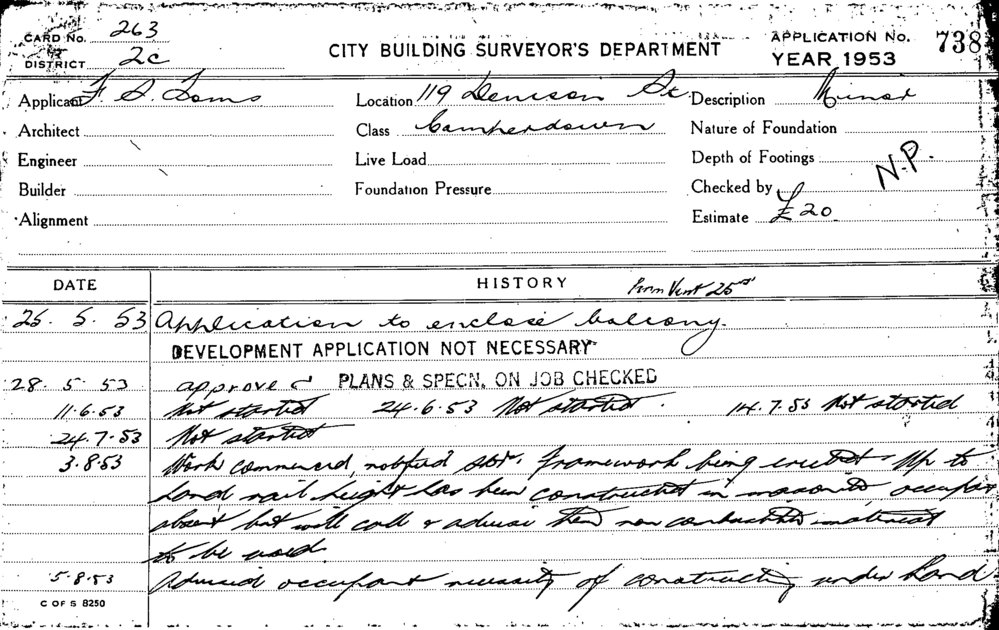 CARD No. 263
DISTRICT 2c
CITY BUILDING SURVEYOR'S DEPARTMENT
APPLICATION No. 738
YEAR 1953
Applicant F. S. Toms
Location 119 Denison St.
Description Minor
Architect
Class Camperdown
Nature of Foundation
Engineer
Live Load
Depth of Footings
N.P.
Builder
Foundation Pressure
Checked by
Alignment
Estimate £20
DATE
HISTORY
Perm Vent 25
25. 5. 53 Application to enclose balcony.
DEVELOPMENT APPLICATION NOT NECESSARY
28. 5. 53 approved PLANS & SPECN. ON JOB CHECKED
11.6.53 Not started 24.6.53 Not started. 14.7.53 Not started
24.7.53 Not started
3.8.53 Work commenced, notified framework being erected. Up to
hand rail height has been constructed in masonite occupant
absent but will call & advise them non combustible material
to be used
5.8.53 Advised occupant necessity of constructing under hand
C OF S 8250